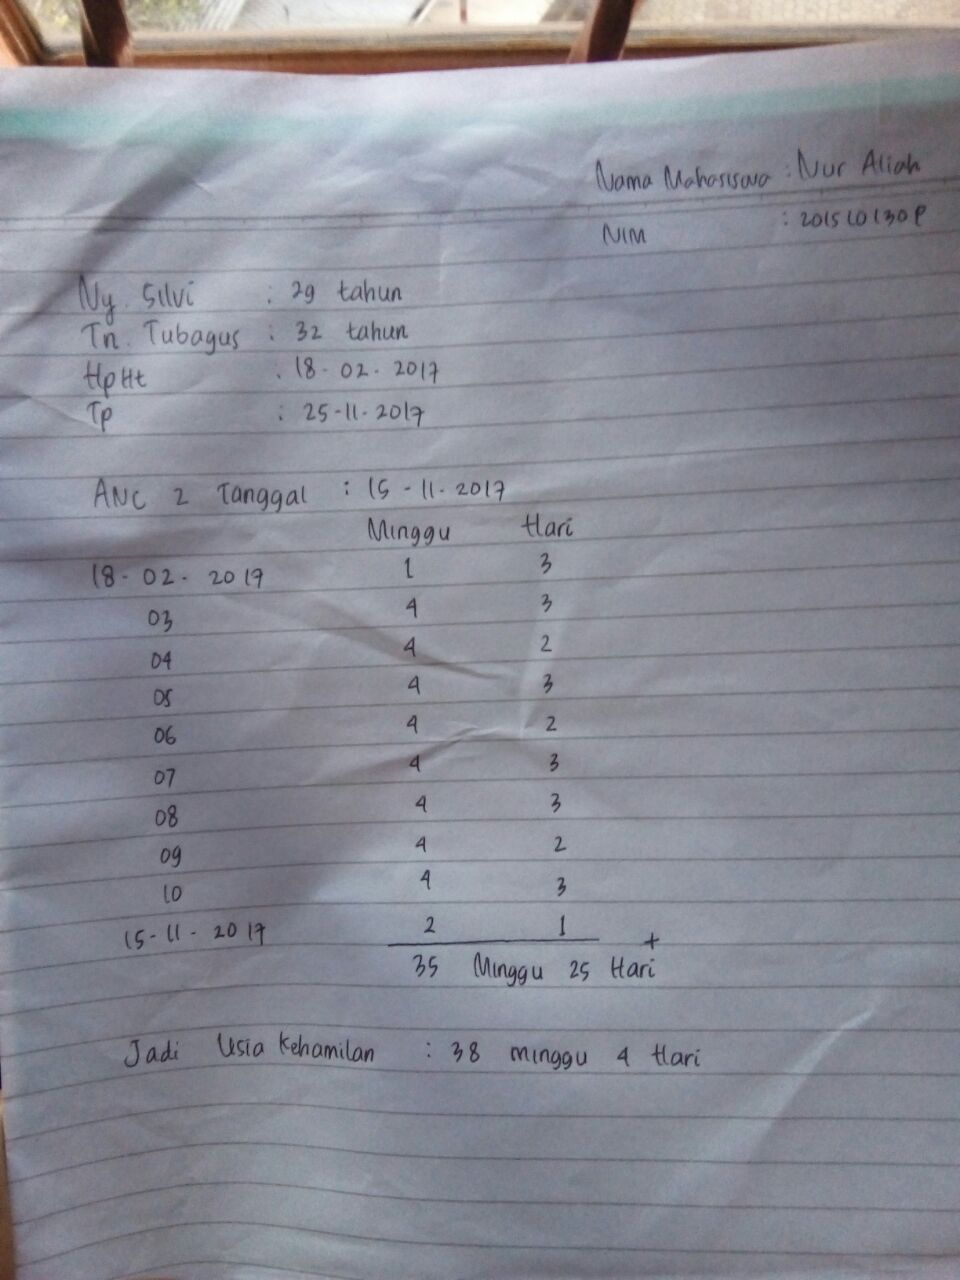 Nama Mahasiswa : Nur Aliah
NIM : 201510130P
Ny. Silvi : 29 tahun
Tn. Tubagus : 32 tahun
HpHt : 18-02-2017
Tp : 25-11-2017
ANC 2 Tanggal : 15-11-2017
Minggu Hari
18-02-2017 1 3
03 4 3
04 4 2
05 4 3
06 4 2
07 4 3
08 4 3
09 4 2
10 4 3
15-11-2017 2 1 +
35 Minggu 25 Hari
Jadi Usia Kehamilan : 38 minggu 4 Hari